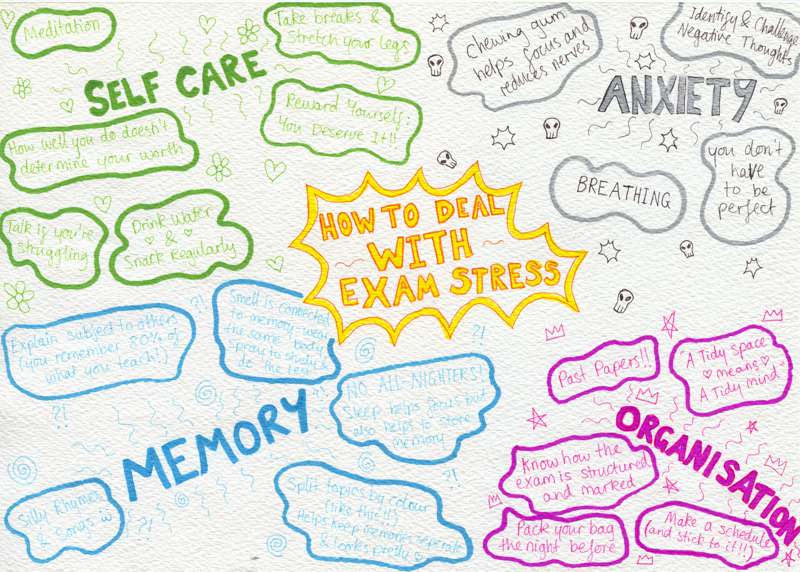 Meditation
Take breaks &
Stretch your legs
SELF CARE
Reward Yourself:
You Deserve It!!
How well you do doesn't
determine your worth
Talk if you're
struggling
Drink Water
&
Snack Regularly
Chewing gum
helps focus and
reduces nerves
Identify & Challenge
Negative Thoughts
ANXIETY
BREATHING
you don't
have
to be
perfect
HOW TO DEAL
WITH
EXAM STRESS
Explain subject to others
(you remember 80% of
what you teach!)
?!
Smell is connected
to memory - wear
the same body
spray to study &
do the test
?!
?!
NO ALL-NIGHTERS!
Sleep helps focus but
also helps to store
memory
?!
MEMORY
?!
Silly Rhymes
& Songs
?!
Split topics by colour
(like this!!)
Helps keep memories seperate
& looks pretty
Past Papers!!
A Tidy space
means
A Tidy mind
ORGANISATION
Know how the
exam is structured
and marked
Pack your bag
the night before
Make a schedule
(and stick to it!!)